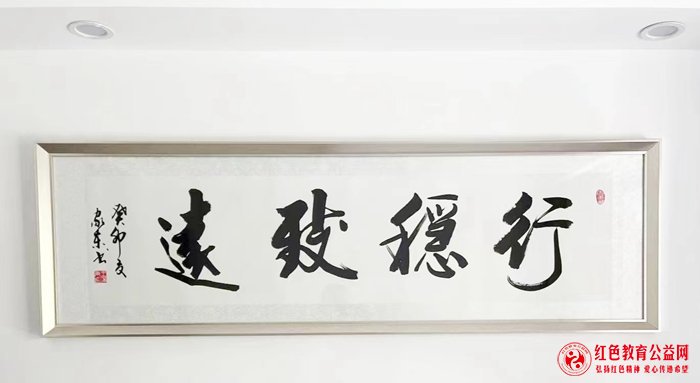 行穩致遠
癸卯夏
家東书
红色教育公益网
弘扬红色精神 爱心传递希望